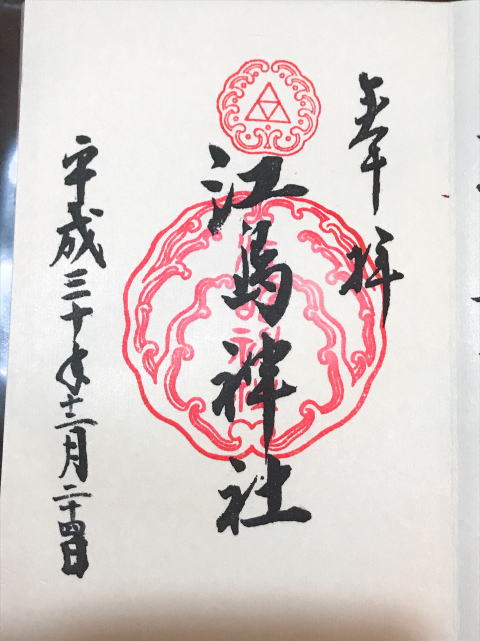 奉拝
江島神社
平成三十年十二月二十四日